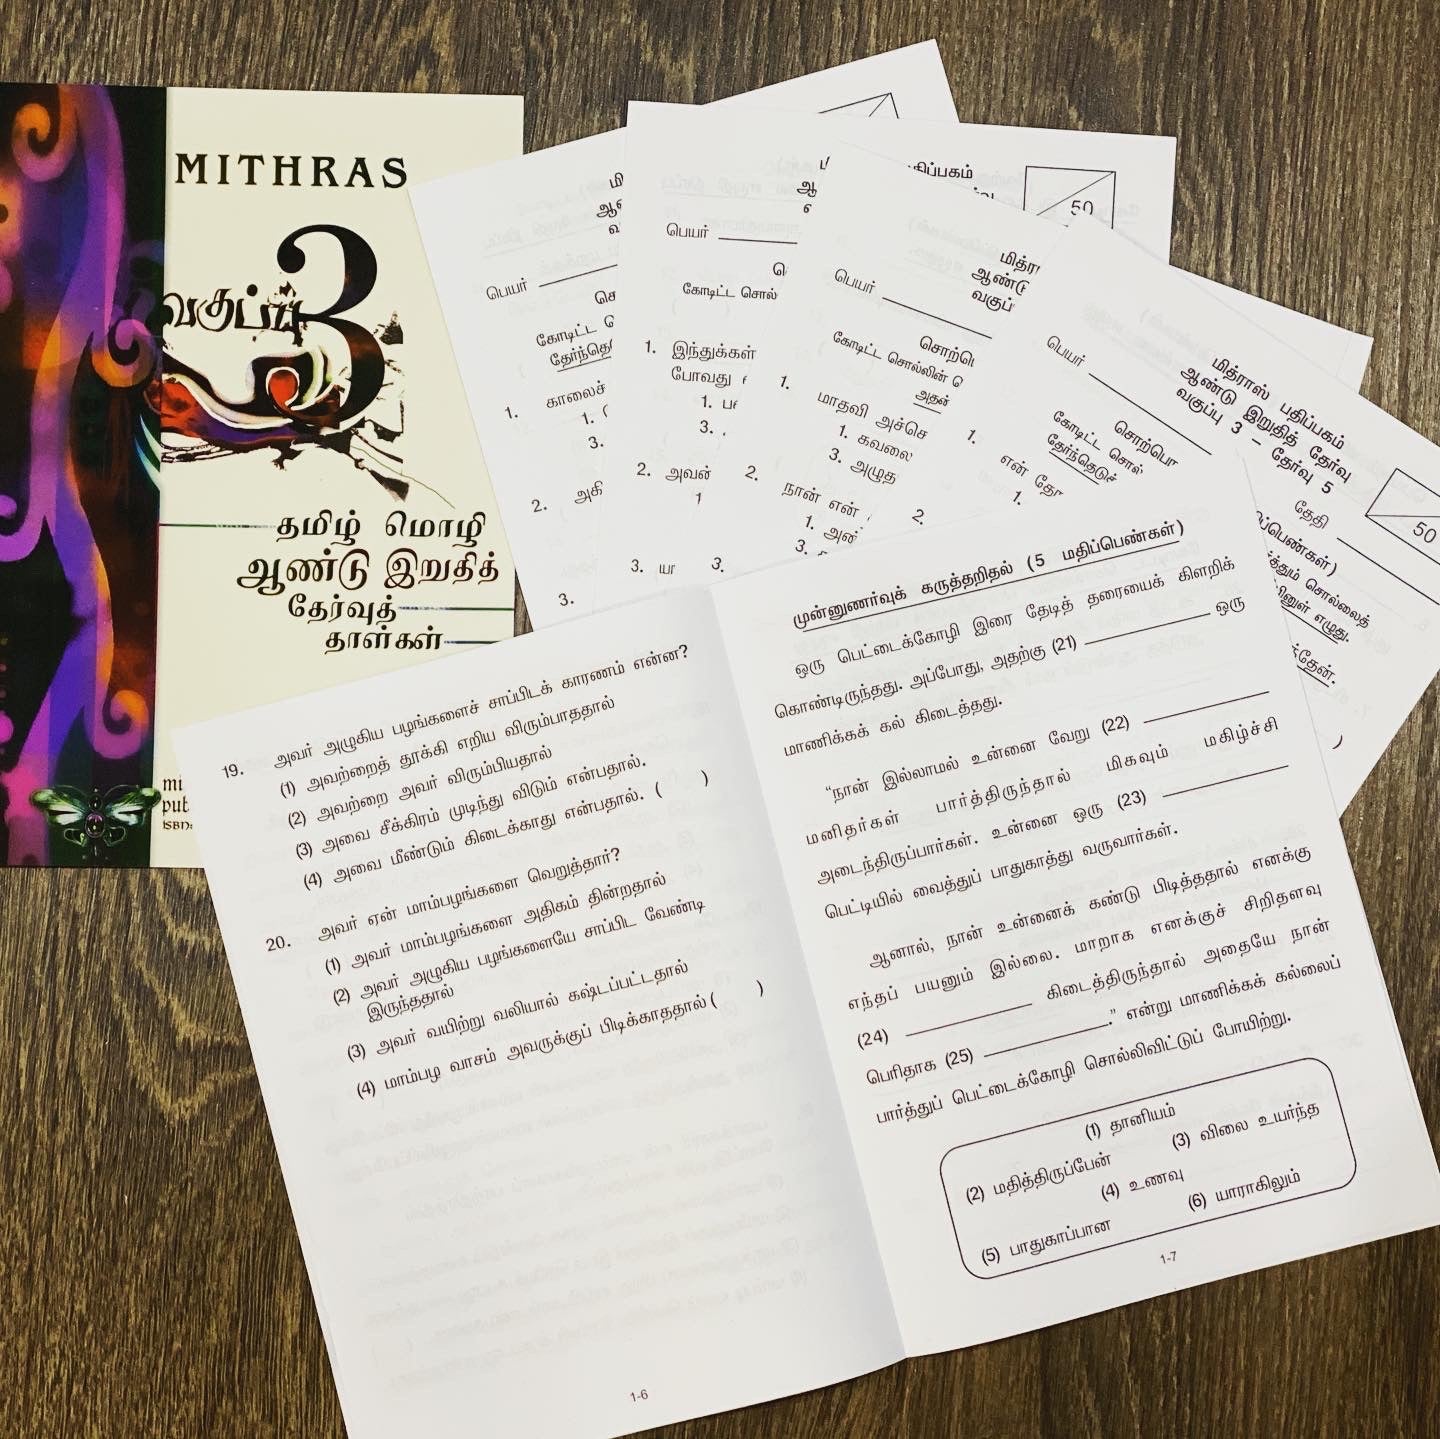 MITHRAS
வகுப்பு
3
தமிழ் மொழி
ஆண்டு இறுதித்
தேர்வுத்
தாள்கள்
ISBN:
பெயர்
கோடிட்ட
1. காலைச்
1.
3.
2.
3.
பெயர்
கோடிட்ட சொல்
1. இந்துக்கள்
போவது
1.
3.
2. அவன்
1
3.
50
பெயர்
கோடிட்ட சொல்லின்
அதன்
1. மாதவி
1. கவலை
3. அழுத
2. நான் என்
1.
3.
3.
பெயர்
கோடிட்ட சொல்
1. என்
1.
2.
மித்ராஸ் பதிப்பகம்
ஆண்டு இறுதித் தேர்வு
வகுப்பு 3 – தேர்வு 5
தேதி
50
சொல்லைத்
எழுது.
19. அவர் அழுகிய பழங்களைச் சாப்பிடக் காரணம் என்ன?
(1) அவற்றைத் தூக்கி எறிய விரும்பாததால்
(2) அவற்றை அவர் விரும்பியதால்
(3) அவை சீக்கிரம் முடிந்து விடும் என்பதால்.
(4) அவை மீண்டும் கிடைக்காது என்பதால். ( )
20. அவர் ஏன் மாம்பழங்களை வெறுத்தார்?
(1) அவர் மாம்பழங்களை அதிகம் தின்றதால்
(2) அவர் அழுகிய பழங்களையே சாப்பிட வேண்டி
இருந்ததால்
(3) அவர் வயிற்று வலியால் கஷ்டப்பட்டதால்
(4) மாம்பழ வாசம் அவருக்குப் பிடிக்காததால் ( )
1-6
முன்னுணர்வுக் கருத்தறிதல் (5 மதிப்பெண்கள்)
ஒரு பெட்டைக்கோழி இரை தேடித் தரையைக் கிளறிக்
கொண்டிருந்தது. அப்போது, அதற்கு (21) ____________ ஒரு
மாணிக்கக் கல் கிடைத்தது.
“நான் இல்லாமல் உன்னை வேறு (22) ____________
மனிதர்கள் பார்த்திருந்தால் மிகவும் மகிழ்ச்சி
அடைந்திருப்பார்கள். உன்னை ஒரு (23) ____________
பெட்டியில் வைத்துப் பாதுகாத்து வருவார்கள்.
ஆனால், நான் உன்னைக் கண்டு பிடித்ததால் எனக்கு
எந்தப் பயனும் இல்லை. மாறாக எனக்குச் சிறிதளவு
(24) ____________ கிடைத்திருந்தால் அதையே நான்
பெரிதாக (25) ____________.” என்று மாணிக்கக் கல்லைப்
பார்த்துப் பெட்டைக்கோழி சொல்லிவிட்டுப் போயிற்று.
(1) தானியம்
(2) மதித்திருப்பேன் (3) விலை உயர்ந்த
(4) உணவு
(5) பாதுகாப்பான (6) யாராகிலும்
1-7